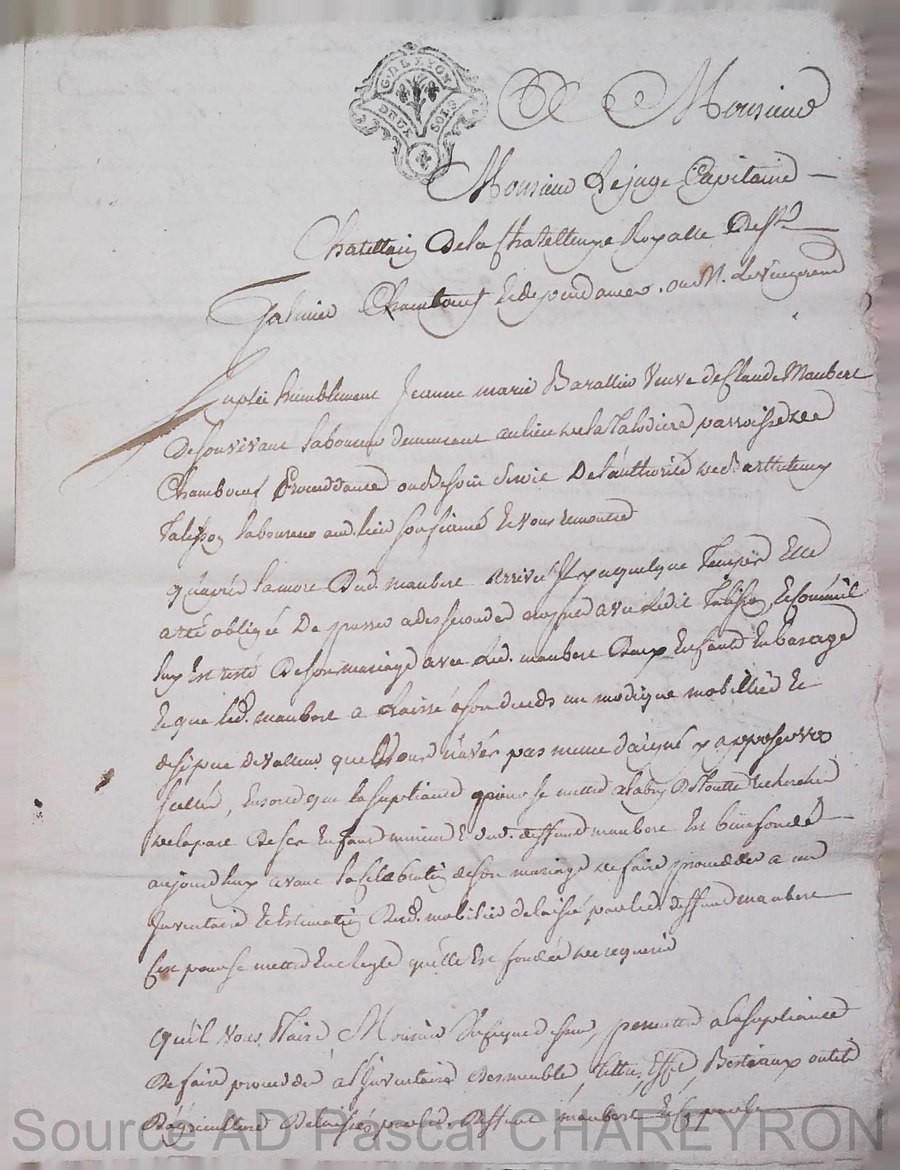 G·D·LYON
DEUX SOLS
A Monsieur
Monsieur Le juge Capitaine
Chatellain De la Chatellenye Royalle De St
Galmier Chambœuf
Supplie humblement Jeanne marie Barallon Veuve de Claude Maubert
De son vivant laboureur demeurant au lieu de la Talodiere parroisse de
Chambœuf De l'authorité de Barthelemy
Talison laboureur aud. lieu son fiancé Et vous remontre
qu'après la mort Dud. maubert arrivée Il y a quelque Temps Elle
a eté obligée De passer a des secondes avec Ledit Talison, Et comme il
luy Est resté De son mariage avec Led. maubert Deux Enfants En bas age
Et que led. maubert a Laissé a son deceds un modique mobillier Et
de si peu de valleur que Vous n'avés pas meme daigné y apposer vos
scellés, Ensorte que la supliante pour se mettre a labry De toutte recherche
de la part De ses Enfants mineurs Et dud. deffunt maubert Est bien fondée
aujourdhuy avant la celebration de son mariage de faire proceder a un
Inventaire Et Estimation Dud. mobilier delaissé par led. deffunt maubert
C'est pour se mettre En regle qu'elle Est fondée de requerir
Qu'il Vous Plaise Monsieur permettre a la supliante
De faire proceder a l'Inventaire Des meubles, Effets, Bestiaux outils
D'agriculture Delaissés par led. Deffunt maubert
Source AD Pascal CHAREYRON